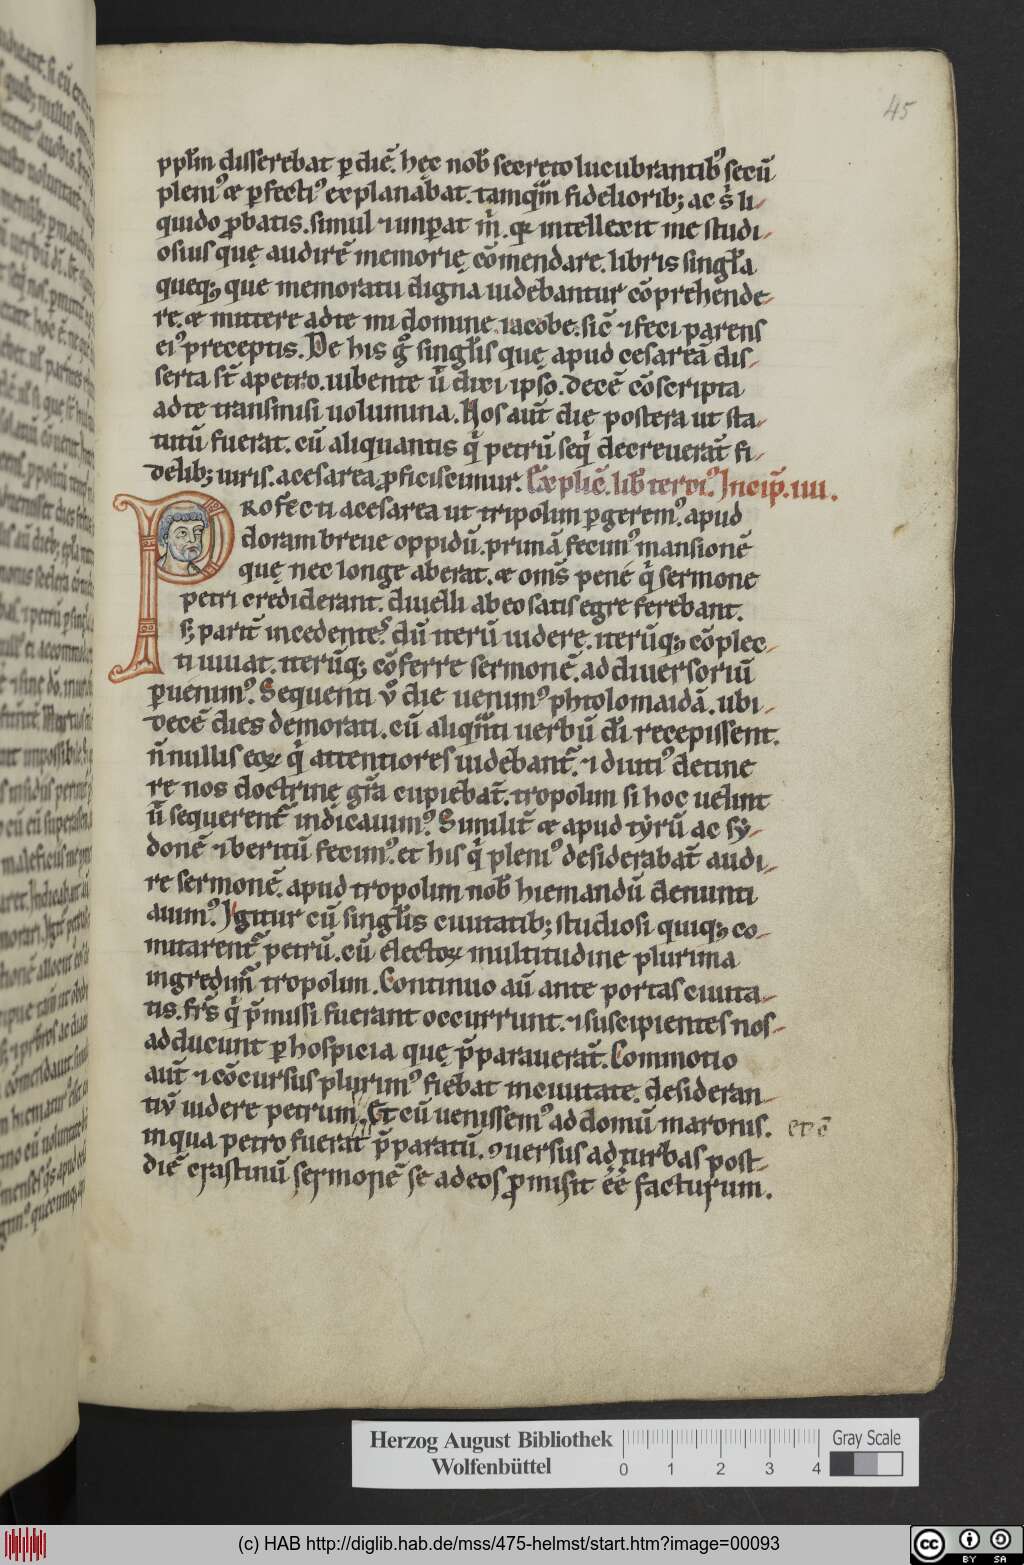 45
pplm̄ disserebat ꝑ diē. hęc nob̄ secreto lucubrantibꝰ secū
pleniꝰ & ꝑfectiꝰ explanabat. tamqm̄ fideliorib; ac s̓ li-
quido ꝓbatis. simul ⁊ imꝑat m̓. qꝛ intellexit me studi-
osius quę audirē memorię cōmendare. libris singl̓a
queq; que memoratu digna uidebantur cōprehende-
re. & mittere ad te mi domine iacobe. sic̄ ⁊ feci parens
eiꝰ preceptis. De his g̊ singl̓is quę apud cesareā dis-
serta st̄ a petro. iubente ū dixi ipso. decē cōscripta
ad te transmisi uolumina. Hos aut̄ die postera ut sta-
tutū fuerat. cū aliquantis q̓ petrū seq̓ decreuerat̄ fi-
delib; uiris. a cesarea ꝓficiscimur. Explic̄. lib̄ terciꝰ. Incip̄. iiii.
PROFECTI a cesarea ut tripolim ꝑgeremꝰ. apud
doram breue oppidū. primā fecimꝰ mansionē
quę nec longe aberat. & om̄s pene q̓ sermone
petri crediderant. diuelli ab eo satis egre ferebant.
s; parit̄ incedentes. dū iterū uidere. iterūq; cōplec-
ti iuuat. iterūq; cōferre sermonē. ad diuersoriū
ꝑuenimꝰ. Sequenti ū die uenimꝰ phtolomaidā. ubi-
decē dies demorati. cū aliqn̄ti uerbū dī recepissent.
n̄ nullis eoꝝ q̓ attentiores uidebant̄. ⁊ diutiꝰ detine
re nos doctrinę gr̄a cupiebat̄. tropolim si hoc uelint
ū sequerent̄ indicauimꝰ. Similit̄ & apud tyrū ac sy-
donē ⁊ beritū fecimꝰ. et his q̓ pleniꝰ desiderabat̄ audi-
re sermonē. apud tropolim nob̄ hiemandū denunti
auimꝰ. Igitur cū singl̓is ciuitatib; studiosi quiq; co-
mitarent̄ petrū. cū electoꝝ multitudine plurima
ingredim̄ tropolim. Continuo aū ante portas ciuita-
tis. fr̄s q̓ p̄missi fuerant occurrunt. ⁊ suscipientes nos-
adducunt ꝑ hospicia quę p̄parauerat̄. Commotio
aut̄ ⁊ cōcursus plurimꝰ fiebat in ciuitate. desideran-
tiū uidere petrum. Et cū uenissemꝰ ad domū maronis.
in qua petro fuerat p̄paratū. ꝯuersus ad turbas post-
diē crastinū sermonē se ad eos ꝓmisit ēē facturum.
Herzog August Bibliothek
Wolfenbüttel
0 1 2 3 4
Gray Scale
(c) HAB http://diglib.hab.de/mss/475-helmst/start.htm?image=00093
cc BY SA